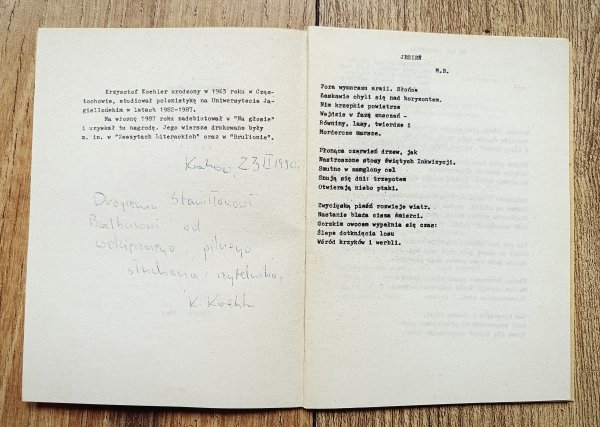 Krzysztof Koehler urodzony w 1963 roku w Częs-
tochowie, studiował polonistykę na Uniwersytecie Ja-
giellońskim w latach 1982-1987.
Na wiosnę 1987 roku zadebiutował w "Na głosie"
i uzyskał tu nagrodę. Jego wiersze drukowane były
m. in. w "Zeszytach Literackich" oraz w "Brulionie".
Kraków, 23 II 1990.
Drogiemu Stanisławowi
Balbusowi od
wdzięcznego, pilnego
słuchacza i czytelnika,
K. Koehler
JESIEŃ
M.B.
Pora wymarszu armii. Słońce
Łaskawie chyli się nad horyzontem.
Nim krzepkie powietrze
Wejdzie w fazę znaczeń -
Równiny, lasy, twierdze i
Mordercze marsze.
Płonąca czerwień drzew, jak
Nastroszone stosy świętych Inkwizycji.
Smutno w zamglony cel
Snują się dni: trzepotem
Otwierają niebo ptaki.
Zwycięską pieśń rozwieje wiatr.
Nastanie blada cisza śmierci.
Gorzkim owocem wypełnia się czas:
Ślepe dotknięcia losu
Wśród krzyków i werbli.